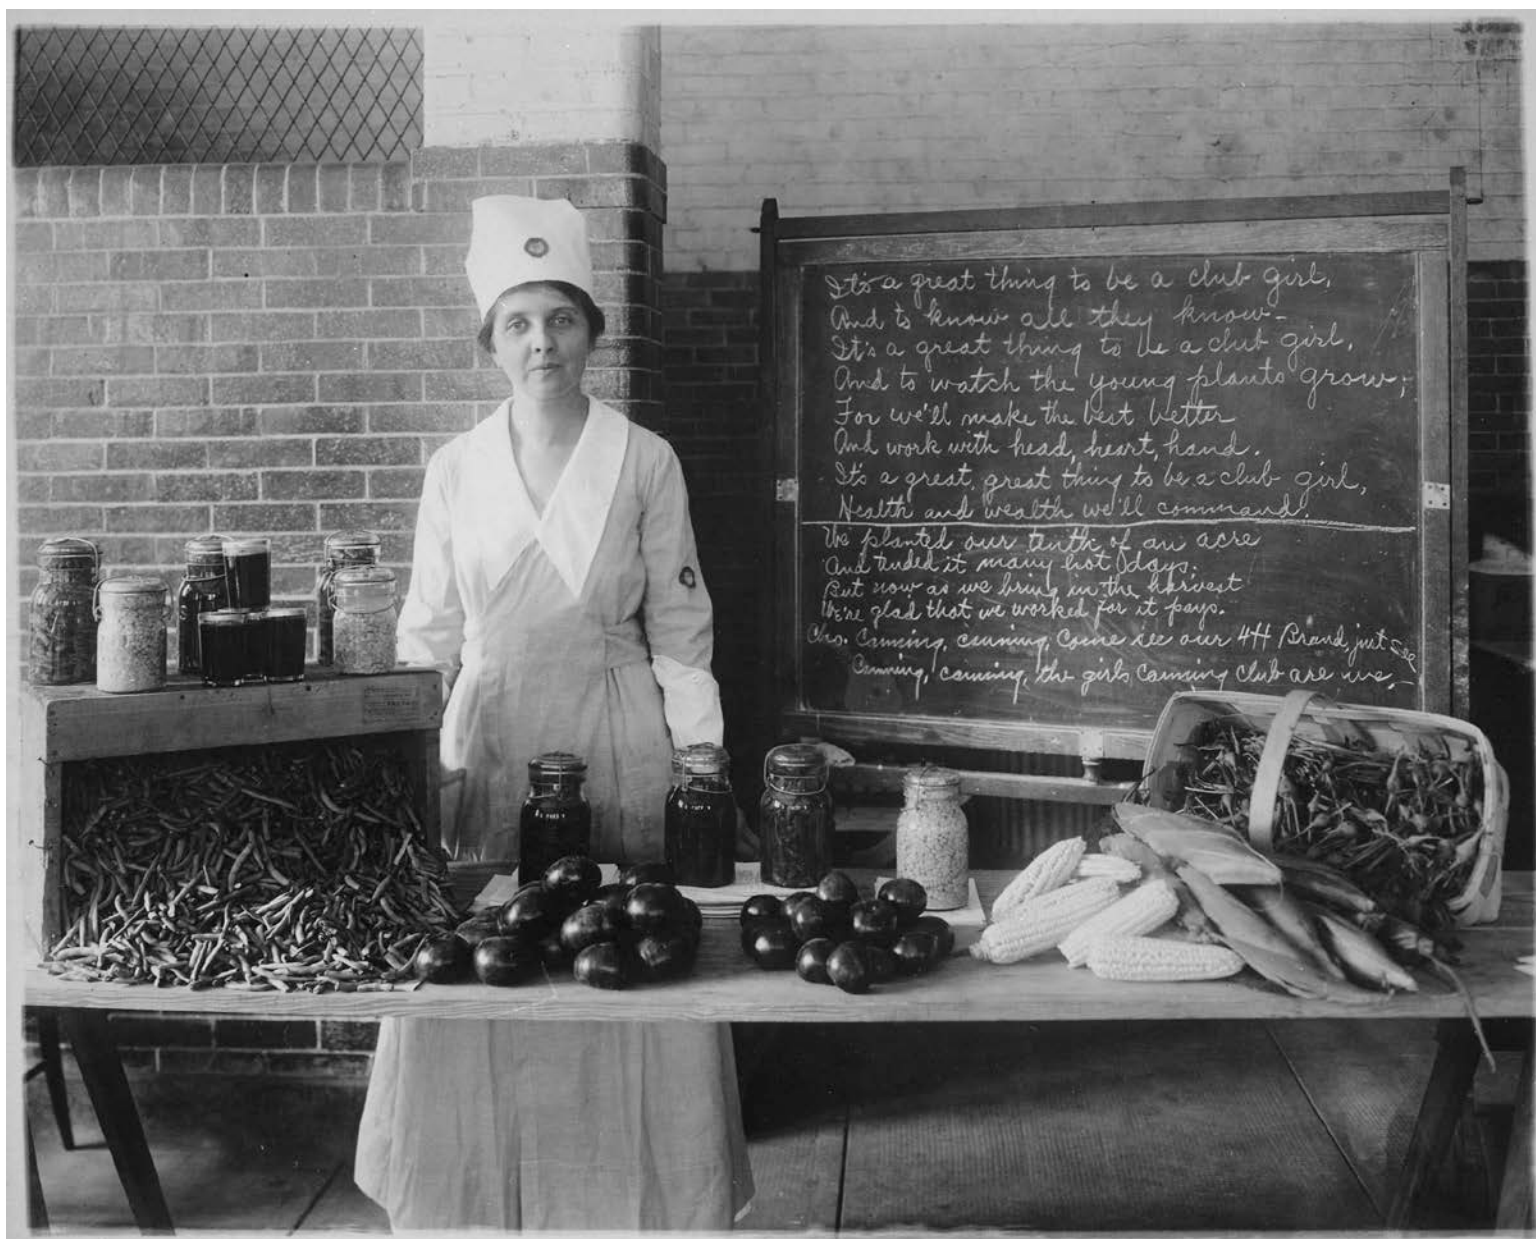 It's a great thing to be a club girl,
And to know all they know-
It's a great thing to be a club girl,
And to watch the young plants grow;
For we'll make the best better
And work with head, heart, hand.
It's a great, great thing to be a club girl,
Health and wealth we'll command.
We planted our tenth of an acre
And tended it many hot days.
But now as we bring in the harvest
We're glad that we worked for it pays.
Cho. Canning, canning, come see our 4H Brand, just see
Canning, canning, the girls canning club are we,-